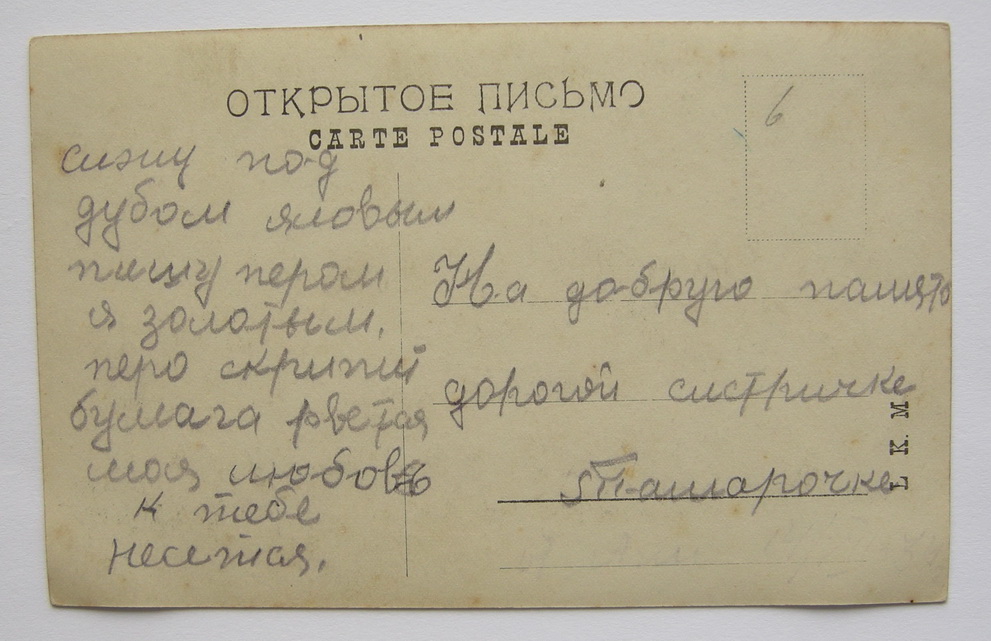 ОТКРЫТОЕ ПИСЬМО
CARTE POSTALE
6
сижу под
дубом яловым
пишу пером
я золотым.
перо скрипит
бумага рвется
моя любовь
к тебе
несется.
На добрую память
дорогой систричке
Тамарочке
L K. M